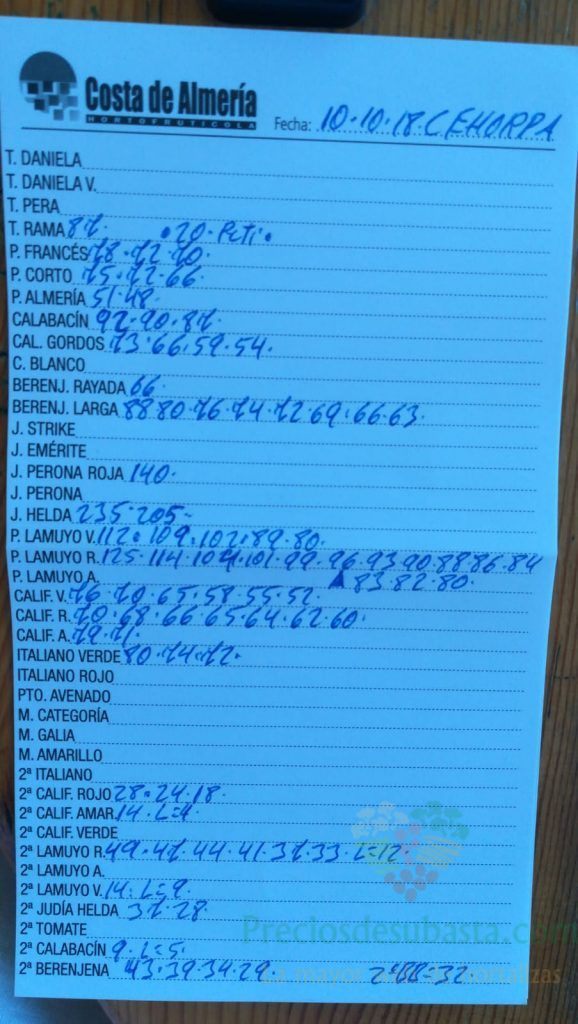 Costa de Almería
HORTOFRUTICOLA
Fecha: 10-10-18-CEHORPA
T. DANIELA
T. DANIELA V.
T. PERA
T. RAMA 87. • 70 - Peti •
P. FRANCÉS 78 - 72 - 70
P. CORTO 75 - 72 - 66
P. ALMERÍA 51 - 48
CALABACÍN 92 - 90 - 87
CAL. GORDOS 73 - 66 - 59 - 54.
C. BLANCO
BERENJ. RAYADA 66
BERENJ. LARGA 88 80 - 76 - 74 - 72 - 69 - 66 - 63.
J. STRIKE
J. EMÉRITE
J. PERONA ROJA 140.
J. PERONA
J. HELDA 235 - 205 -
P. LAMUYO V. 112 - 109 - 102 - 89 - 80.
P. LAMUYO R. 125 - 114 - 104 - 101 - 99 - 96 - 93 90 - 88 86 - 84
P. LAMUYO A. 83 82 - 80 -
CALIF. V. 76 - 70 - 65 - 58 - 55 - 52.
CALIF. R. 70 - 68 - 66 65 64 - 62 - 60.
CALIF. A. 79 - 71.
ITALIANO VERDE 80 - 74 - 72 -
ITALIANO ROJO
PTO. AVENADO
M. CATEGORÍA
M. GALIA
M. AMARILLO
2ª ITALIANO
2ª CALIF. ROJO 28 - 24 - 18 -
2ª CALIF. AMAR 14 - L=4.
2ª CALIF. VERDE
2ª LAMUYO R. 49 - 47 - 44 - 41 - 37 - 33 - L=12 -
2ª LAMUYO A.
2ª LAMUYO V. 14 - L=9.
2ª JUDÍA HELDA 37 - 28.
2ª TOMATE
2ª CALABACÍN 9 - L=5.
2ª BERENJENA 43 - 39 - 34 - 29.
Preciosdesubasta.com